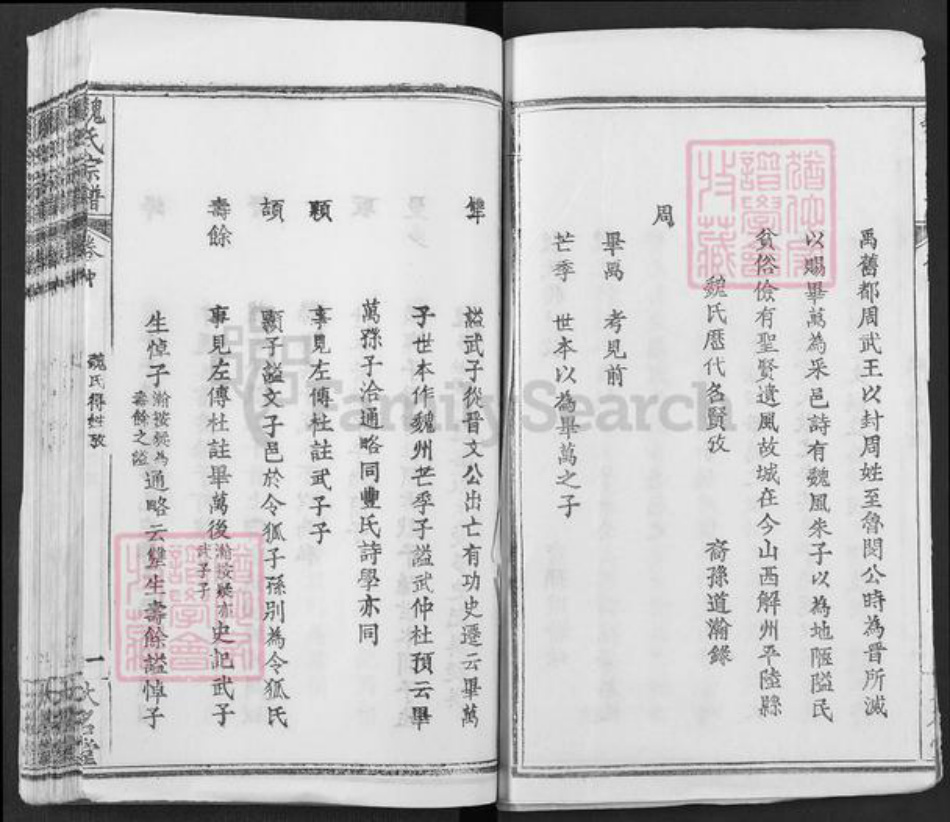 禹舊都周武王以封周姓至魯閔公時為晉所滅
以賜畢萬為采邑詩有魏風朱子以為地陿隘民
貧俗儉有聖賢遺風故城在今山西解州平陸縣
魏氏歷代名賢攷 裔孫道瀚錄
周
畢萬 考見前
芒季 世本以為畢萬之子
犨 諡武子從晉文公出亡有功史遷云畢萬
子世本作魏州芒季子諡武仲杜預云畢
萬孫子洽通略同豐氏詩學亦同
顆 事見左傳杜註武子子
頡 顆子諡文子邑於令狐子孫別為令狐氏
壽餘 事見左傳杜註畢萬後瀚按疑亦武子子史記武子
生悼子瀚按疑為壽餘之諡通略云犨生壽餘諡悼子
魏氏宗譜
卷中
魏氏得姓攷
一
大名堂
FamilySearch
譜學會
收藏
譜學會
收藏